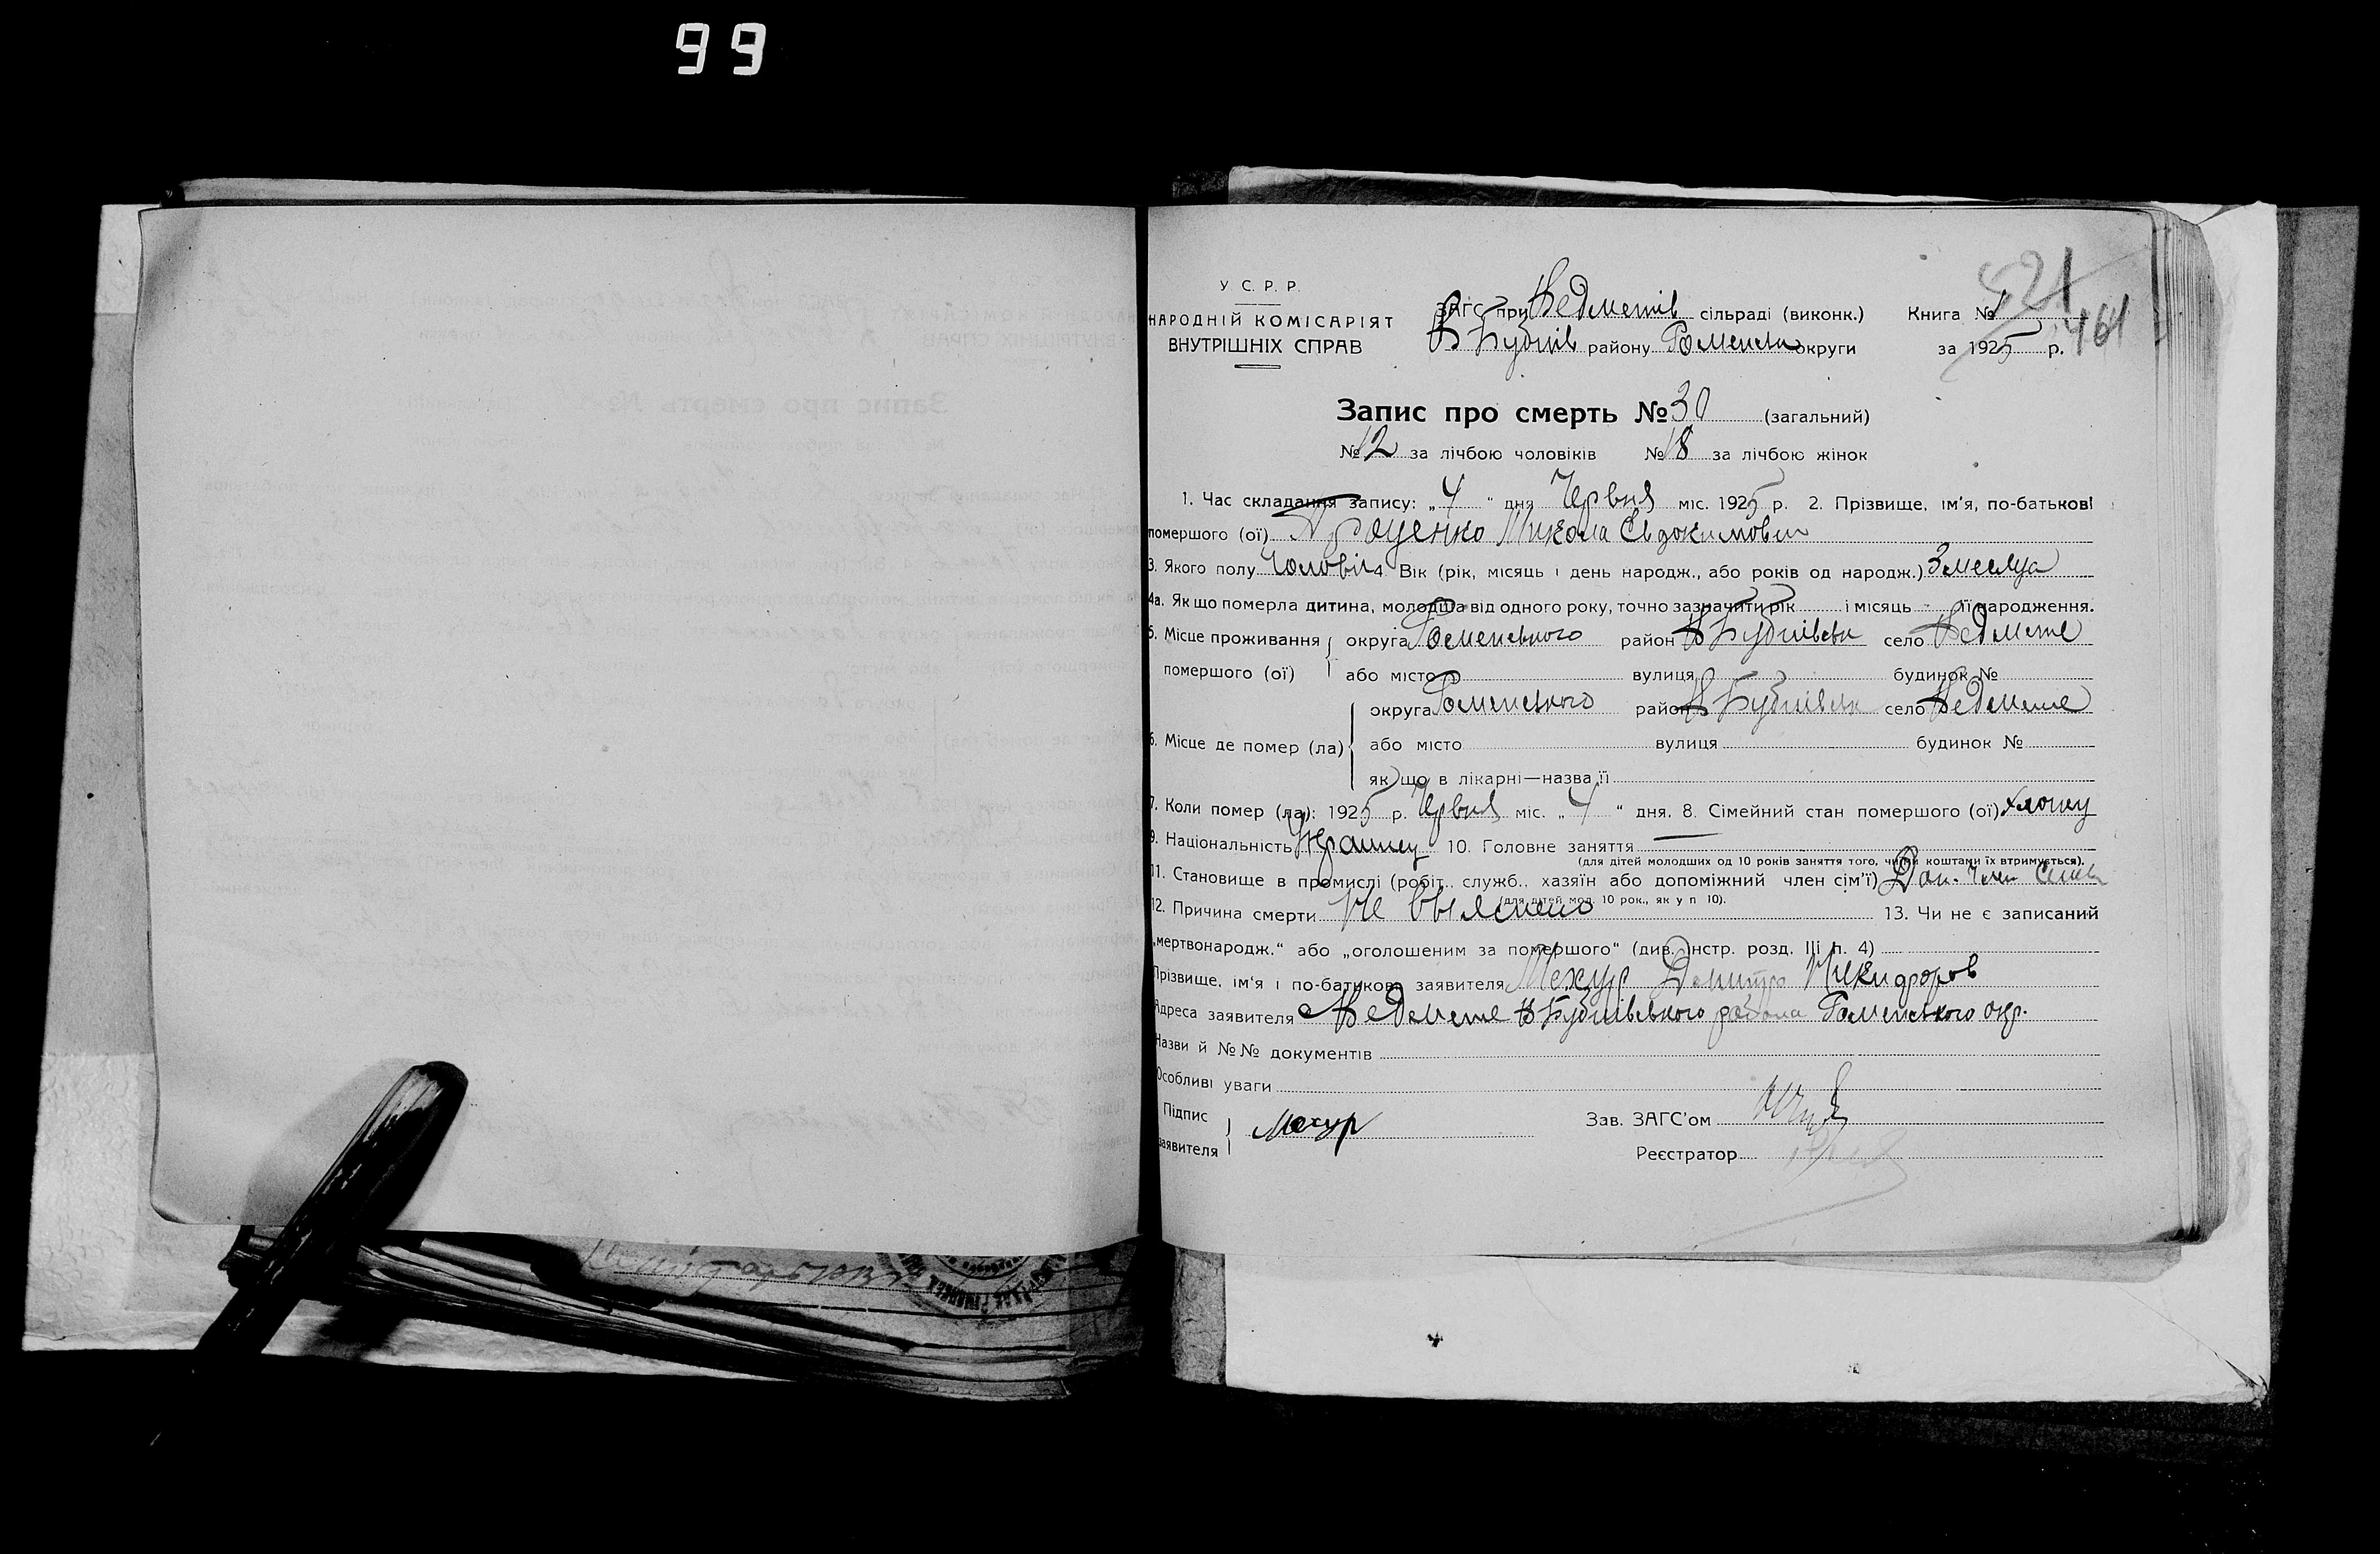 99
У. С. Р. Р.
НАРОДНІЙ КОМІСАРІЯТ
ВНУТРІШНІХ СПРАВ
ЗАГС при сільраді (виконк.)
району округи
Книга № 1
за 1925 р.
461
Запис про смерть № 30 (загальний)
№ 12 за лічбою чоловіків № 18 за лічбою жінок
1. Час складання запису: „ 4 “ дня Червня міс. 1925 р. 2. Прізвище, ім'я, по-батькові
помершого (ої) Микола Євдокимович
3. Якого полу Чоловіч 4. Вік (рік, місяць і день народж., або років од народж.) 3 месяца
4а. Якщо померла дитина, молодша від одного року, точно зазначити рік і місяць її народження.
5. Місце проживання округа Роменського район село Ведмеже
помершого (ої) або місто вулиця будинок №
округа Роменського район село Ведмеже
6. Місце де помер (ла) або місто вулиця будинок №
якщо в лікарні—назва її
7. Коли помер (ла): 1925 р. Червня міс. „ 4 “ дня. 8. Сімейний стан помершого (ої)
9. Національність 10. Головне заняття —
(для дітей молодших од 10 років заняття того, чиїми коштами їх втримується).
11. Становище в промислі (робіт., служб., хазяїн або допоміжний член сім'ї) Доп. член
(для дітей мол. 10 рок., як у п 10).
12. Причина смерти Не 13. Чи не є записаний
„мертвонародж.“ або „оголошеним за помершого“ (див. інстр. розд. III п. 4)
Прізвище, ім'я і по-батькові заявителя Мохур Дмитро Никифоров
Адреса заявителя Ведмеже Роменського окр.
Назви й №№ документів
Особливі уваги
Підпис
заявителя Мохур
Зав. ЗАГС'ом
Реєстратор